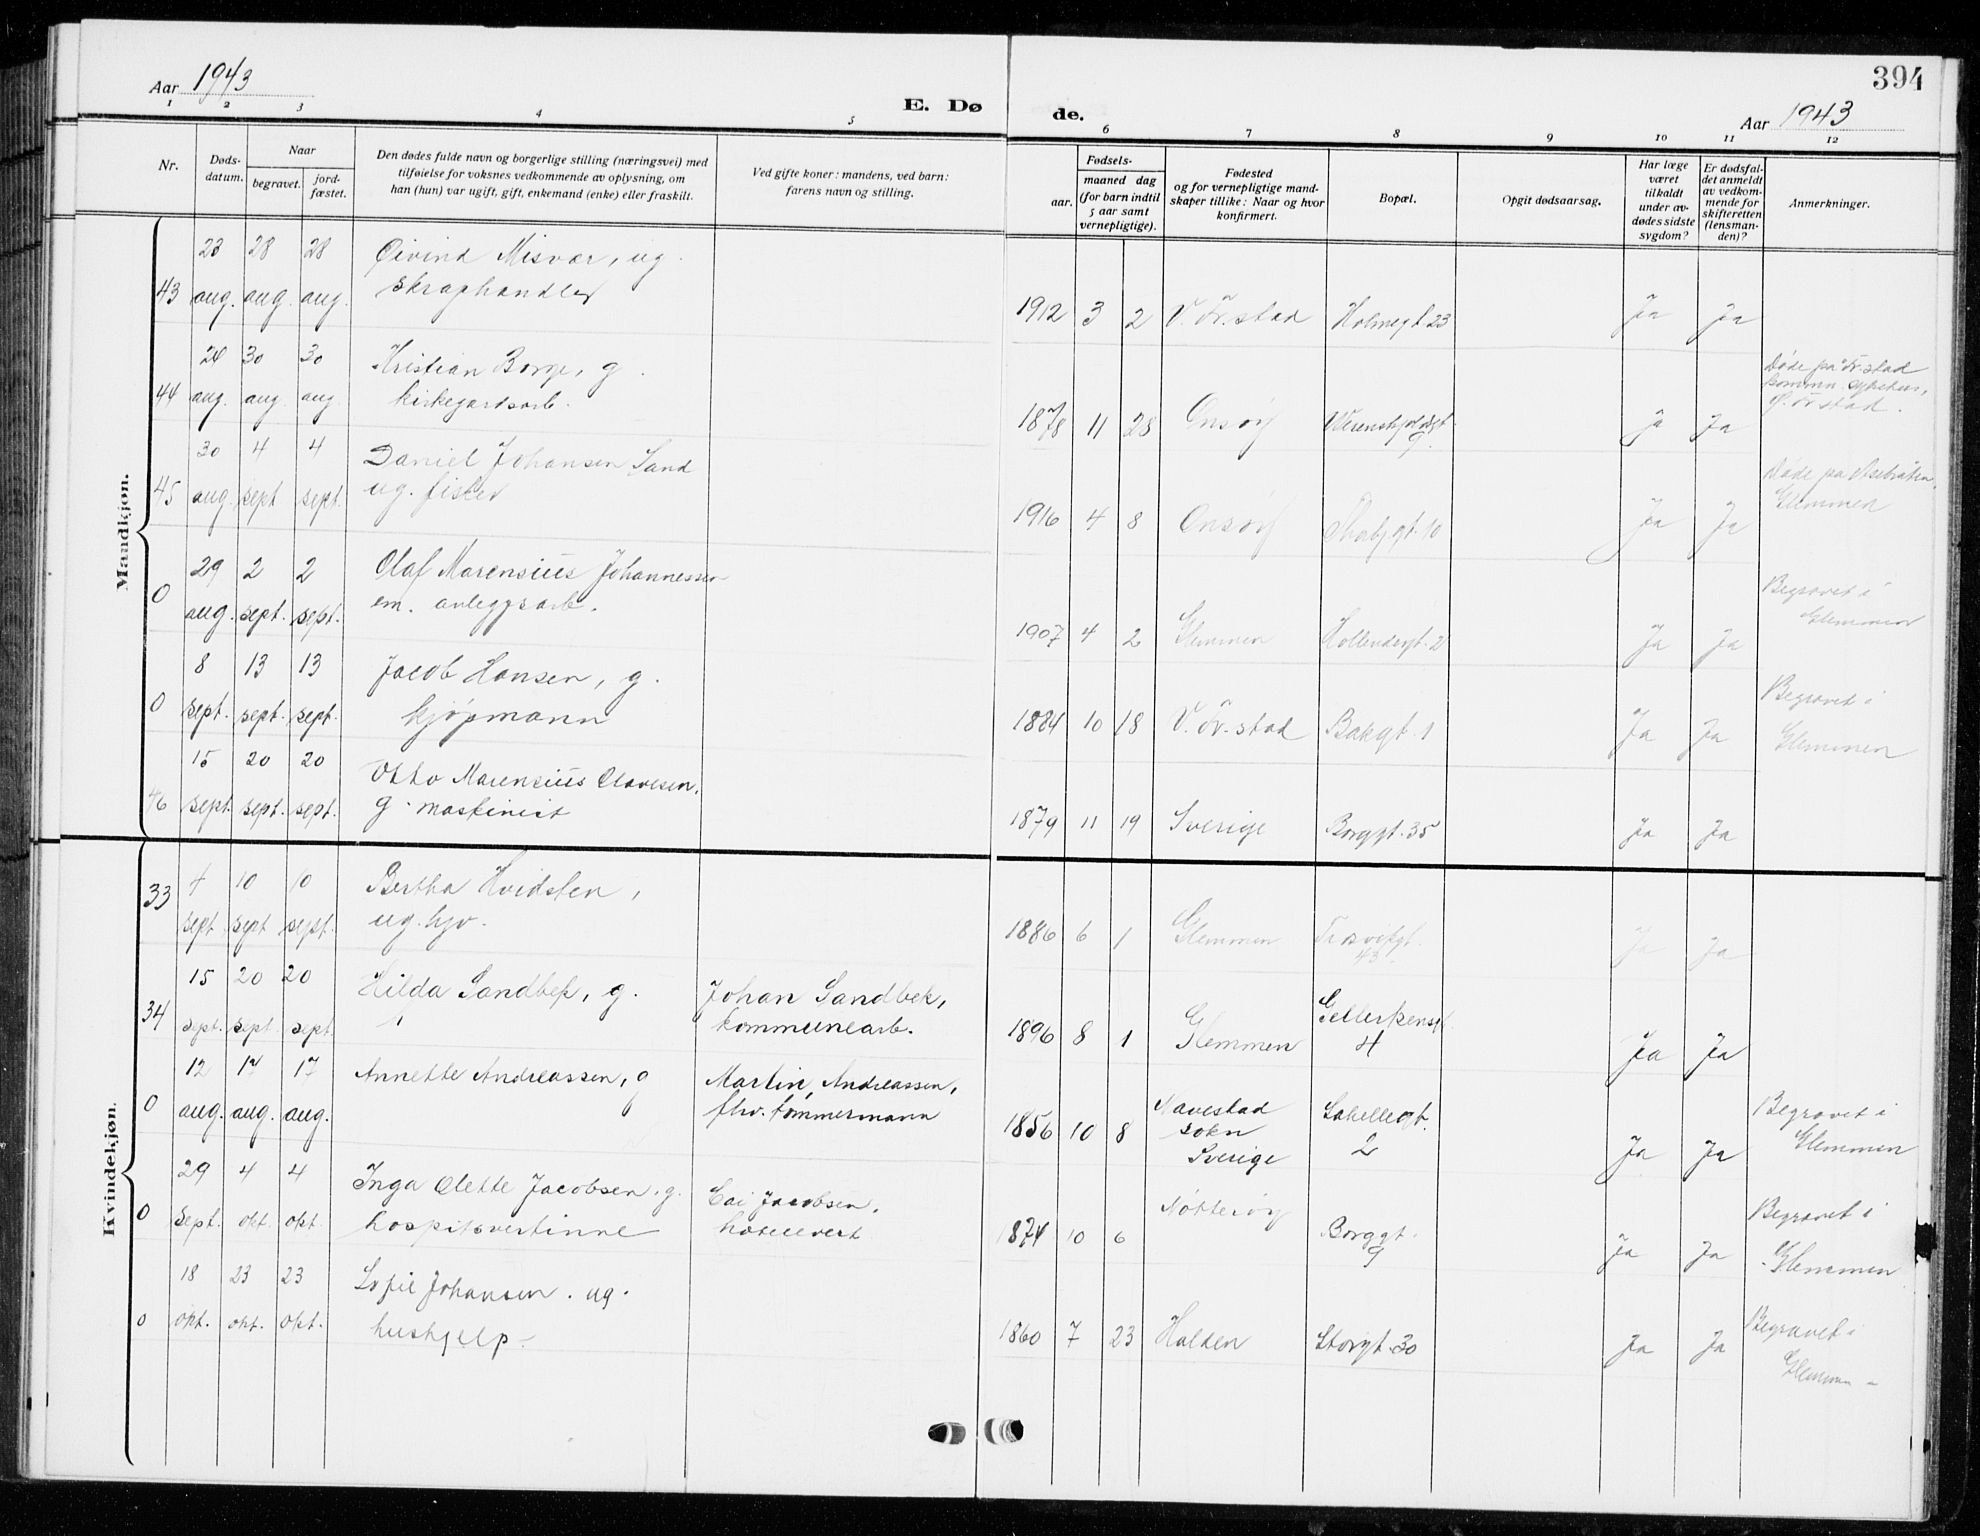 394
Aar 1943
E. Dø
de.
Aar 1943
1 2 3 4 5 6 7 8 9 10 11 12
Nr.
Døds-
datum.
Naar
begravet.
jord-
fæstet.
Den dødes fulde navn og borgerlige stilling (næringsvei) med
tilføielse for voksnes vedkommende av oplysning, om
han (hun) var ugift, gift, enkemand (enke) eller fraskilt.
Ved gifte koner: mandens, ved barn:
farens navn og stilling.
Fødsels-
aar.
maaned dag
(for barn indtil
5 aar samt
vernepligtige).
Fødested
og for vernepligtige mand-
skaper tillike: Naar og hvor
konfirmert.
Bopæl.
Opgit dødsaarsag.
Har læge
været
tilkaldt
under av-
dødes sidste
sygdom?
Er dødsfal-
det anmeldt
av vedkom-
mende for
skifteretten
(lensman-
den)?
Anmerkninger.
Mandkjøn.
23 28 28 Øivind Misvær, ug.
43 aug. aug. aug. skraphandler
1912 3 2 V. Fr.stad Holmegt. 23 Ja Ja
30 30 Kristian Borge, g.
44 aug. aug. aug. kirkegardsarb.
1878 11 28 Onsøy 9 Ja Ja
Døde på Fr.stad
kommn. sykehus,
Fr.stad.
30 4 4 Daniel Johansen Sand
45 aug. sept sept. ug. fisker
1916 4 8 Onsøy Ja Ja
Døde på
Glemmen
29 2 2 Olaf Marensius Johannessen
0 aug. sept. sept. em. anleggsarb.
1907 4 2 Glemmen Hollendergt. 2 Ja Ja
Begravet i
Glemmen
8 13 13 Jacob Hansen, g.
0 sept. sept. sept. kjøpmann
1884 10 18 V. Fr.stad Bakgt. 1 Ja Ja
Begravet i
Glemmen
15 20 20 Otto Marensius Olavesen,
46 sept. sept. sept. g. maskinist
1879 11 19 Sverige Borggt. 35 Ja Ja
Kvindekjøn.
10 10 Bertha Hvidsten,
33 sept sept sept. ug. hjv.
1886 6 1 Glemmen Trosvikgt.
43 Ja Ja
15 20 20 Hilda Sandbek, g. Johan Sandbek,
34 sept. sept. sept. kommunearb.
1896 8 1 Glemmen Gellertsensgt.
4 Ja Ja
12 17 17 Annette Andreassen, g Martin Andreassen,
0 aug. aug. aug. fhv. tømmermann
1856 10 8 Navestad
sokn
Sverige
2 Ja Ja
Begravet i
Glemmen
29 4 4 Inga Olette Jacobsen, g. Cai Jacobsen,
0 sept. okt. okt. hospitsvertinne hotellvert
1874 10 6 Nøtterøy Borggt.
9 Ja Ja
Begravet i
Glemmen
18 23 23 Sofie Johansen. ug.
0 okt. okt. okt. hushjelp.
1860 7 23 Halden Storgt. 30 Ja Ja
Begravet i
Glemmen